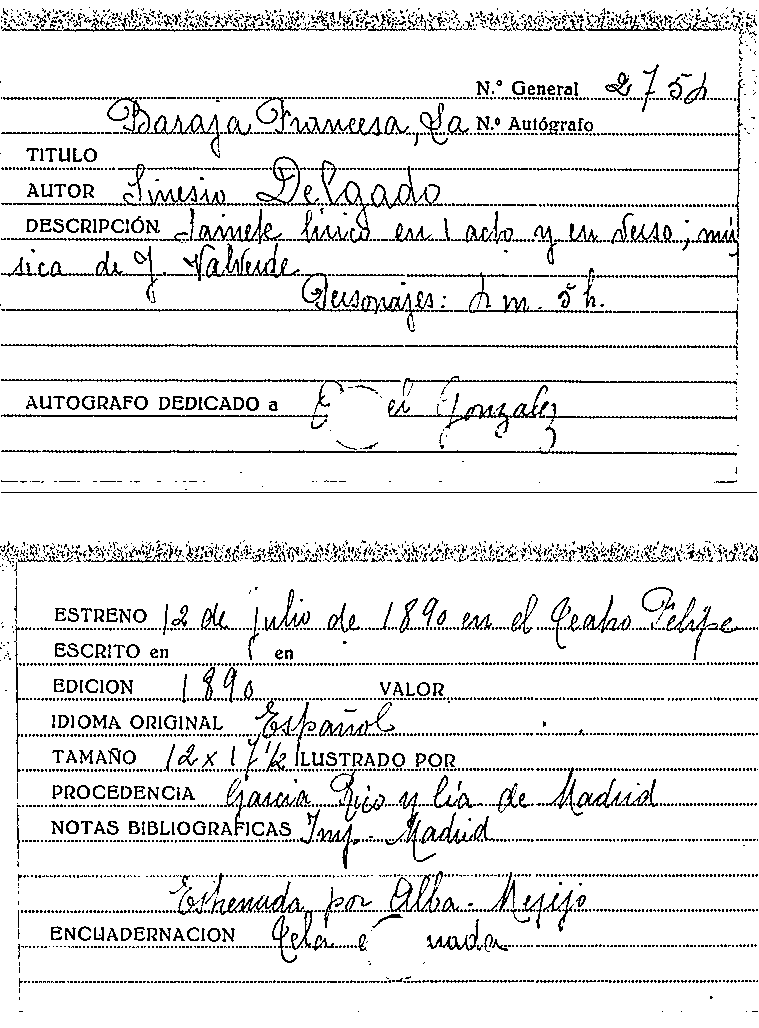 N.º General 2754
Baraja Francesa, La N.º Autógrafo
TITULO
AUTOR Sinesio Delgado
DESCRIPCIÓN Sainete lírico en 1 acto y en verso; mú
sica de J. Valverde
Personajes: 4 m. 5 h.
AUTOGRAFO DEDICADO a el Gonzalez
ESTRENO 12 de julio de 1890 en el Teatro Felipe
ESCRITO en en
EDICION 1890 VALOR
IDIOMA ORIGINAL Español
TAMAÑO 12 x 17 1/2 ILUSTRADO POR
PROCEDENCIA Garcia Rico y Cía de Madrid
NOTAS BIBLIOGRAFICAS Imp. Madrid
Estrenada por Alba - Mejijo
ENCUADERNACION Tela e nada